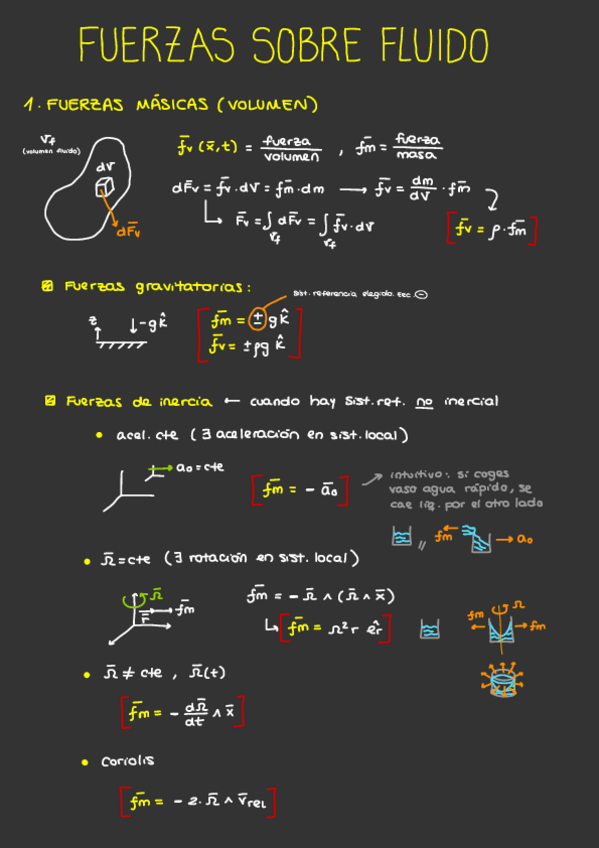 FUERZAS SOBRE FLUIDO
1. FUERZAS MÁSICAS (VOLUMEN)
Vf
(volumen fluido)
dV
dF̄v
f̄v (x̄,t) = fuerza/volumen , f̄m = fuerza/masa
dF̄v = f̄v · dV = f̄m · dm → f̄v = dm/dV · f̄m
F̄v = ∫Vf dF̄v = ∫Vf f̄v · dV
[f̄v = ρ · f̄m]
Fuerzas gravitatorias:
sist. referencia elegido. Tec ⊖
z ↓ -g k̂
f̄m = ± g k̂
f̄v = ± ρg k̂
Fuerzas de inercia ← cuando hay sist.ref. no inercial
• acel. cte (∃ aceleración en sist. local)
a₀ = cte
[f̄m = - ā₀]
intuitivo: si coges
vaso agua rápido, se
cae líq. por el otro lado
f̄m → a₀
• Ω̄ = cte (∃ rotación en sist. local)
Ω̄
f̄m
r̄
f̄m = - Ω̄ ∧ (Ω̄ ∧ x̄)
↳ [f̄m = Ω² r êr]
Ω
fm
fm
• Ω̄ ≠ cte , Ω̄(t)
[f̄m = - dΩ̄/dt ∧ x̄]
• Coriolis
[f̄m = - 2 · Ω̄ ∧ v̄rel]